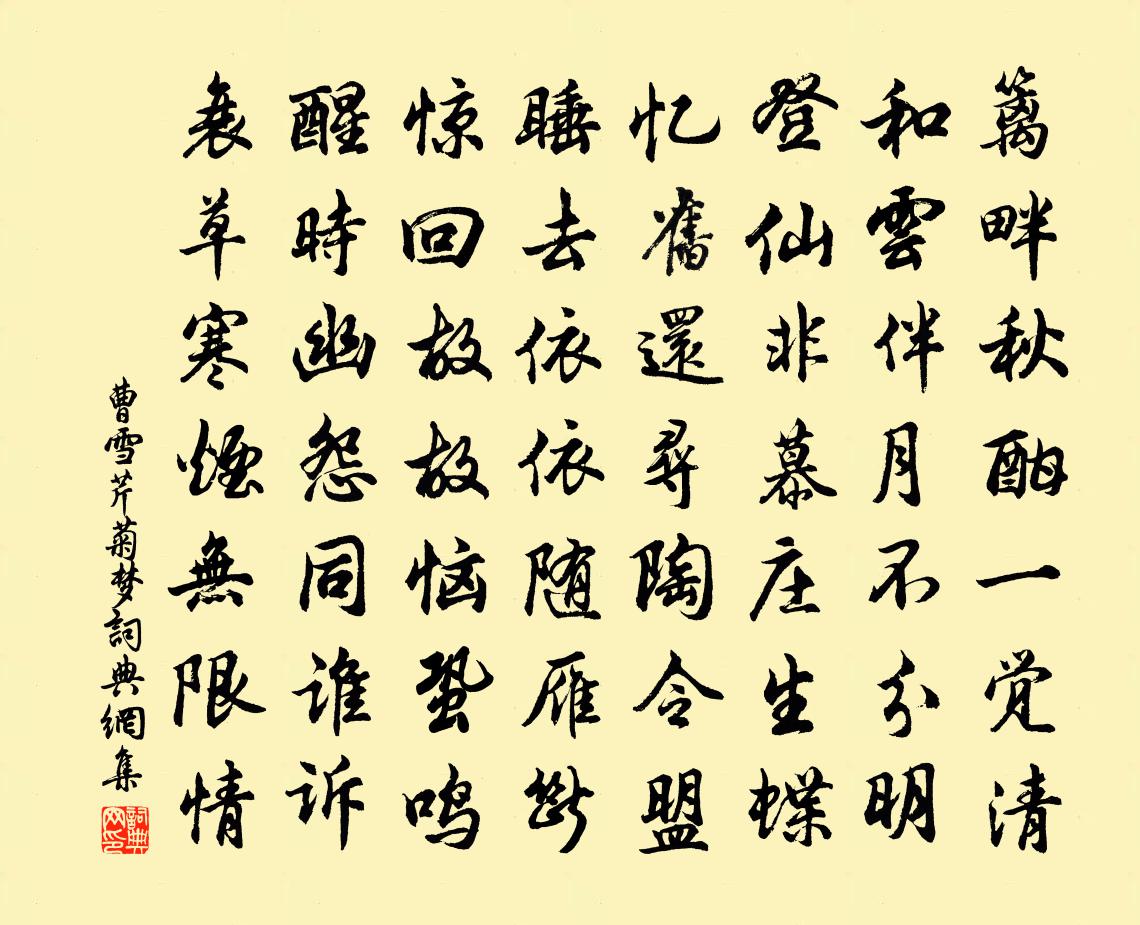 籬畔秋酣一觉清
和雲伴月不分明
登仙非慕庄生蝶
忆舊還尋陶令盟
睡去依依随雁断
惊回故故恼蛩鸣
醒時幽怨同谁诉
衰草寒煙無限情
曹雪芹菊梦詞典網集
詞典網印